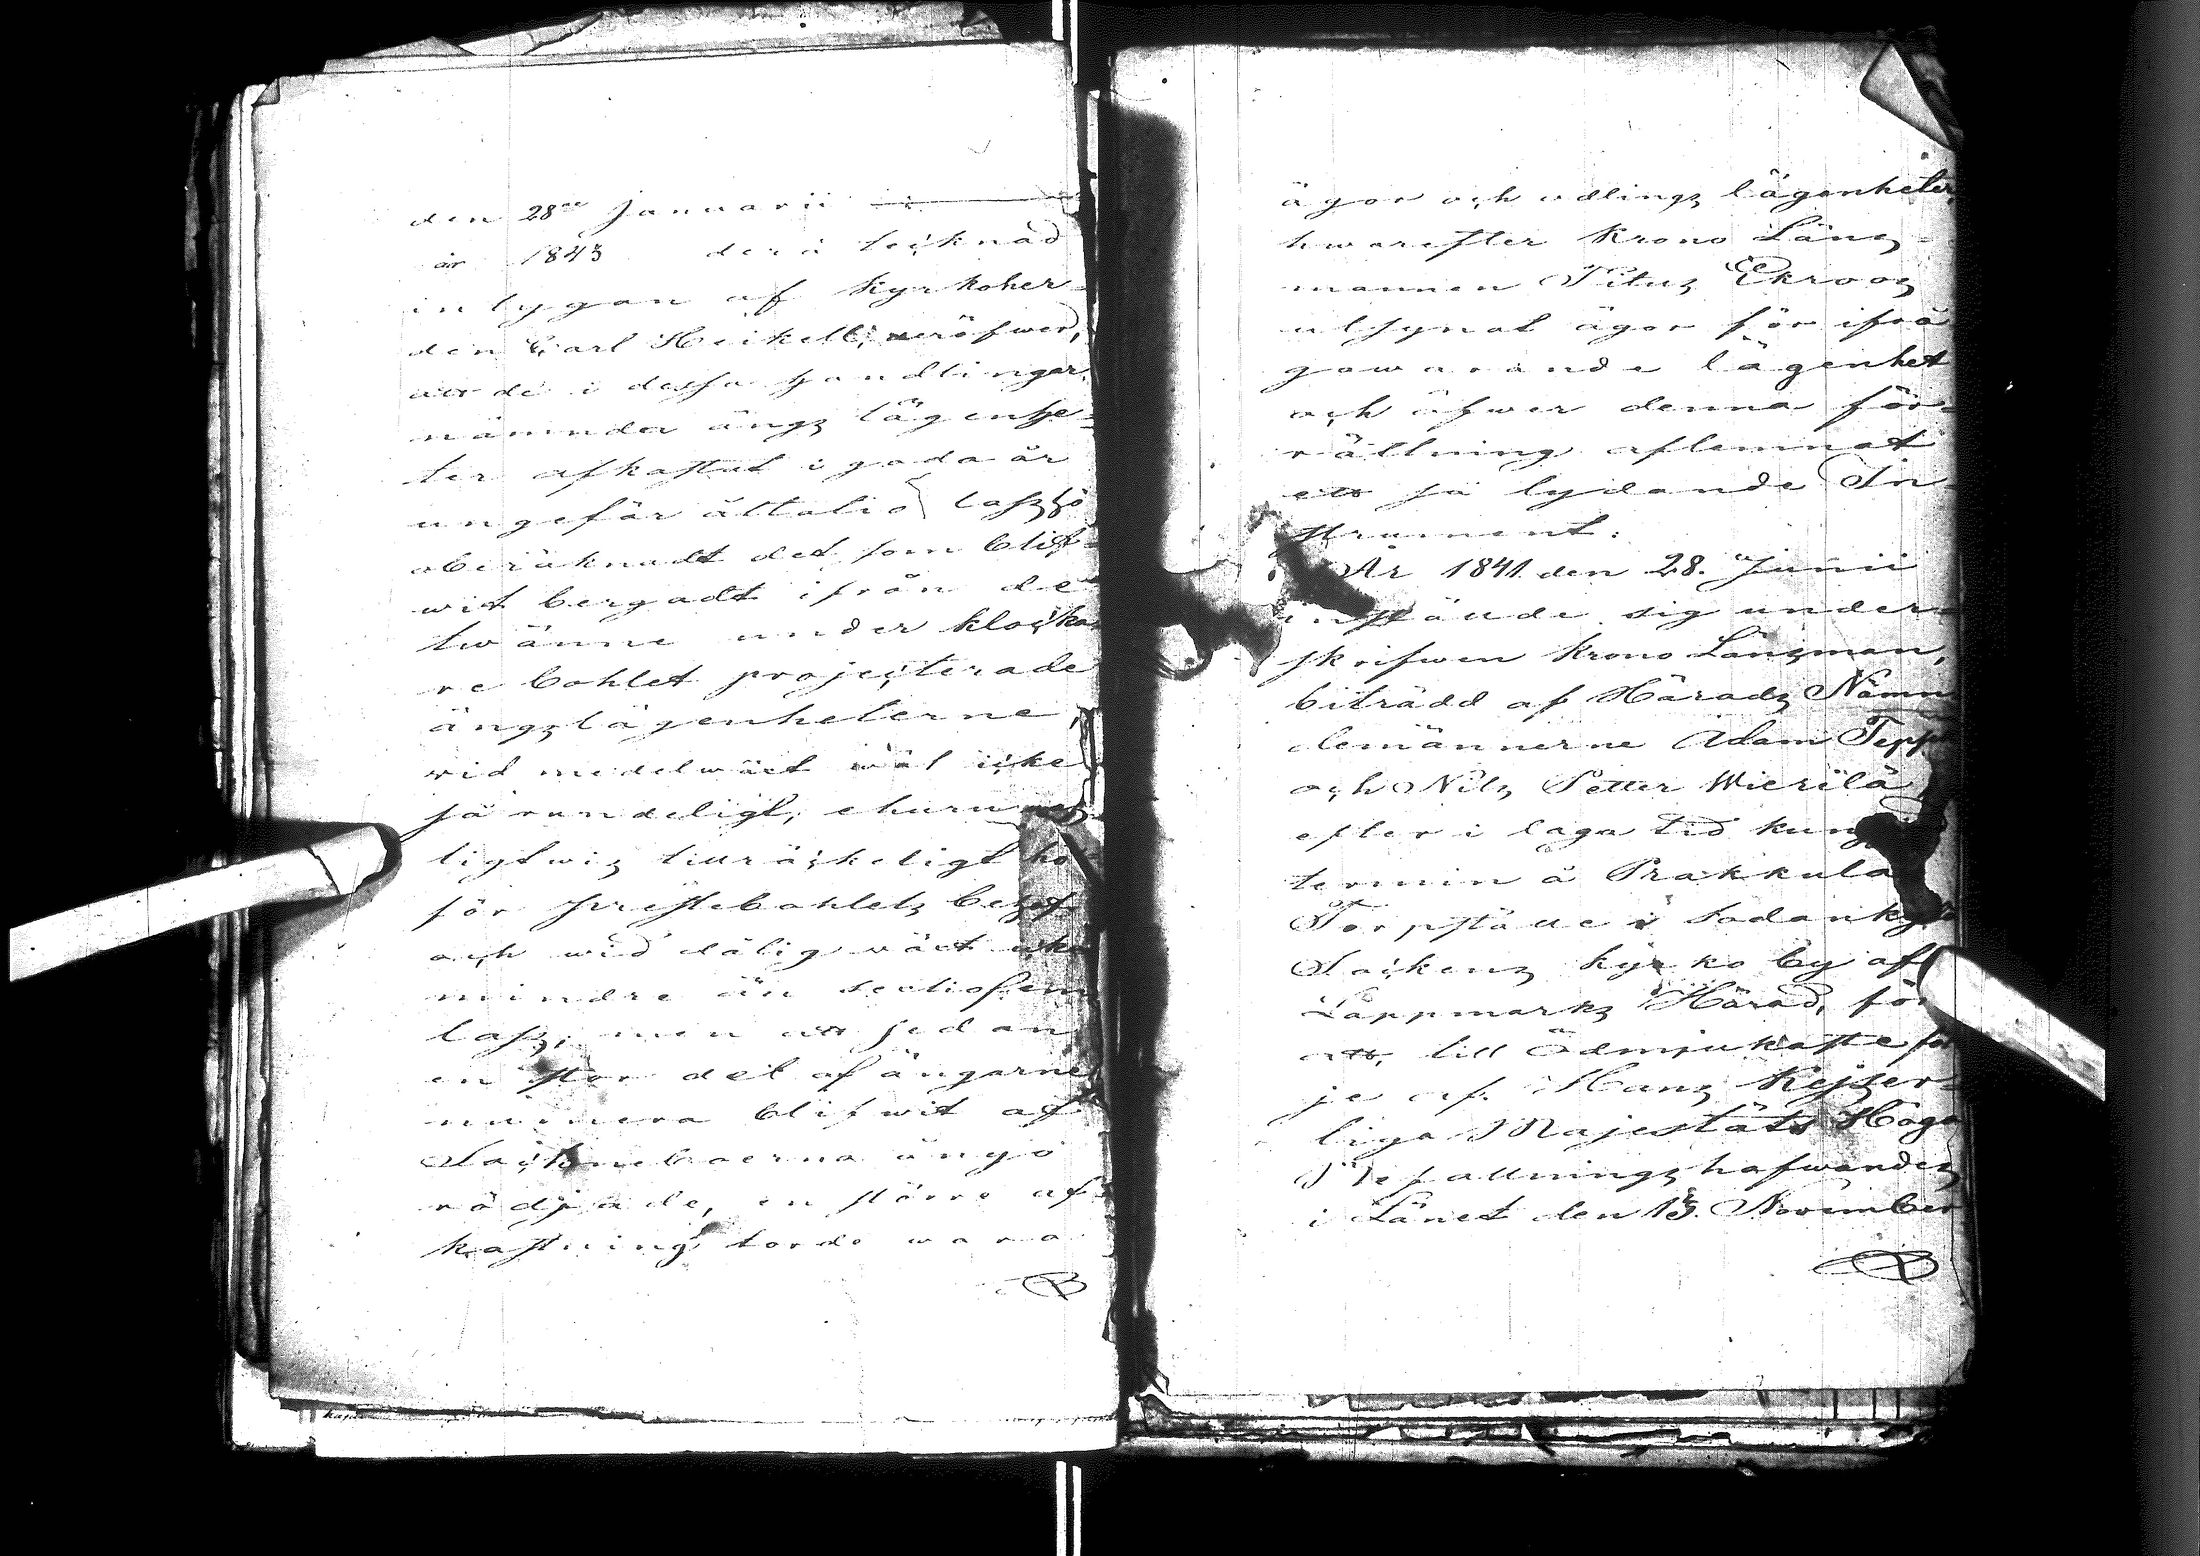 den 28de Januarii
år 1843 derå tecknad
intygan af Kyrkoher-
den Carl Heikell; utröfwer,
att de i dessa handlingar
nämnda ängs lägenhe-
ter afkastat i goda år
ungefär åttatio lass hö
oberäknadt det som blif-
wit bergadt ifrån de
twänne under klocka-
re bohlet projecterade
ängslägenheterne,
vid medelwäxt wäl icke
så rundeligt, ehuru
ligtwis tillräckeligt hö
för Prestebohlets behof
och wid dålig wäxt icke
mindre än sextiofem
lass, men att sedan
en stor del af ängarne
numera blifwit af
Sockneboerna ånyo
rödjade, en större af-
kastning torde wara
ägor och odlings lägenheter,
hwarefter Krono Läns-
mannen Titus Ekroos
utsynat ägor för ifrå
gawarande lägenhet
och öfwer denna för-
rättning aflemnat
ett så lydande In-
strument:
År 1841 den 28. Junii
instäude sig under-
skrifwen Krono Länsman,
biträdd af Härads Nämn
demännerne Adam Tepp
och Nils Petter Wierilä
efter i laga tid kung
termin å Prakkula
Torpställe i Sodanky
Sockens kyrko by af
Lappmarks Härad, för
att, till Ödmjukaste föl
je af Hans Kejser-
liga Majestäts Höga
Befallningshafwandes
i Länet den 13. November